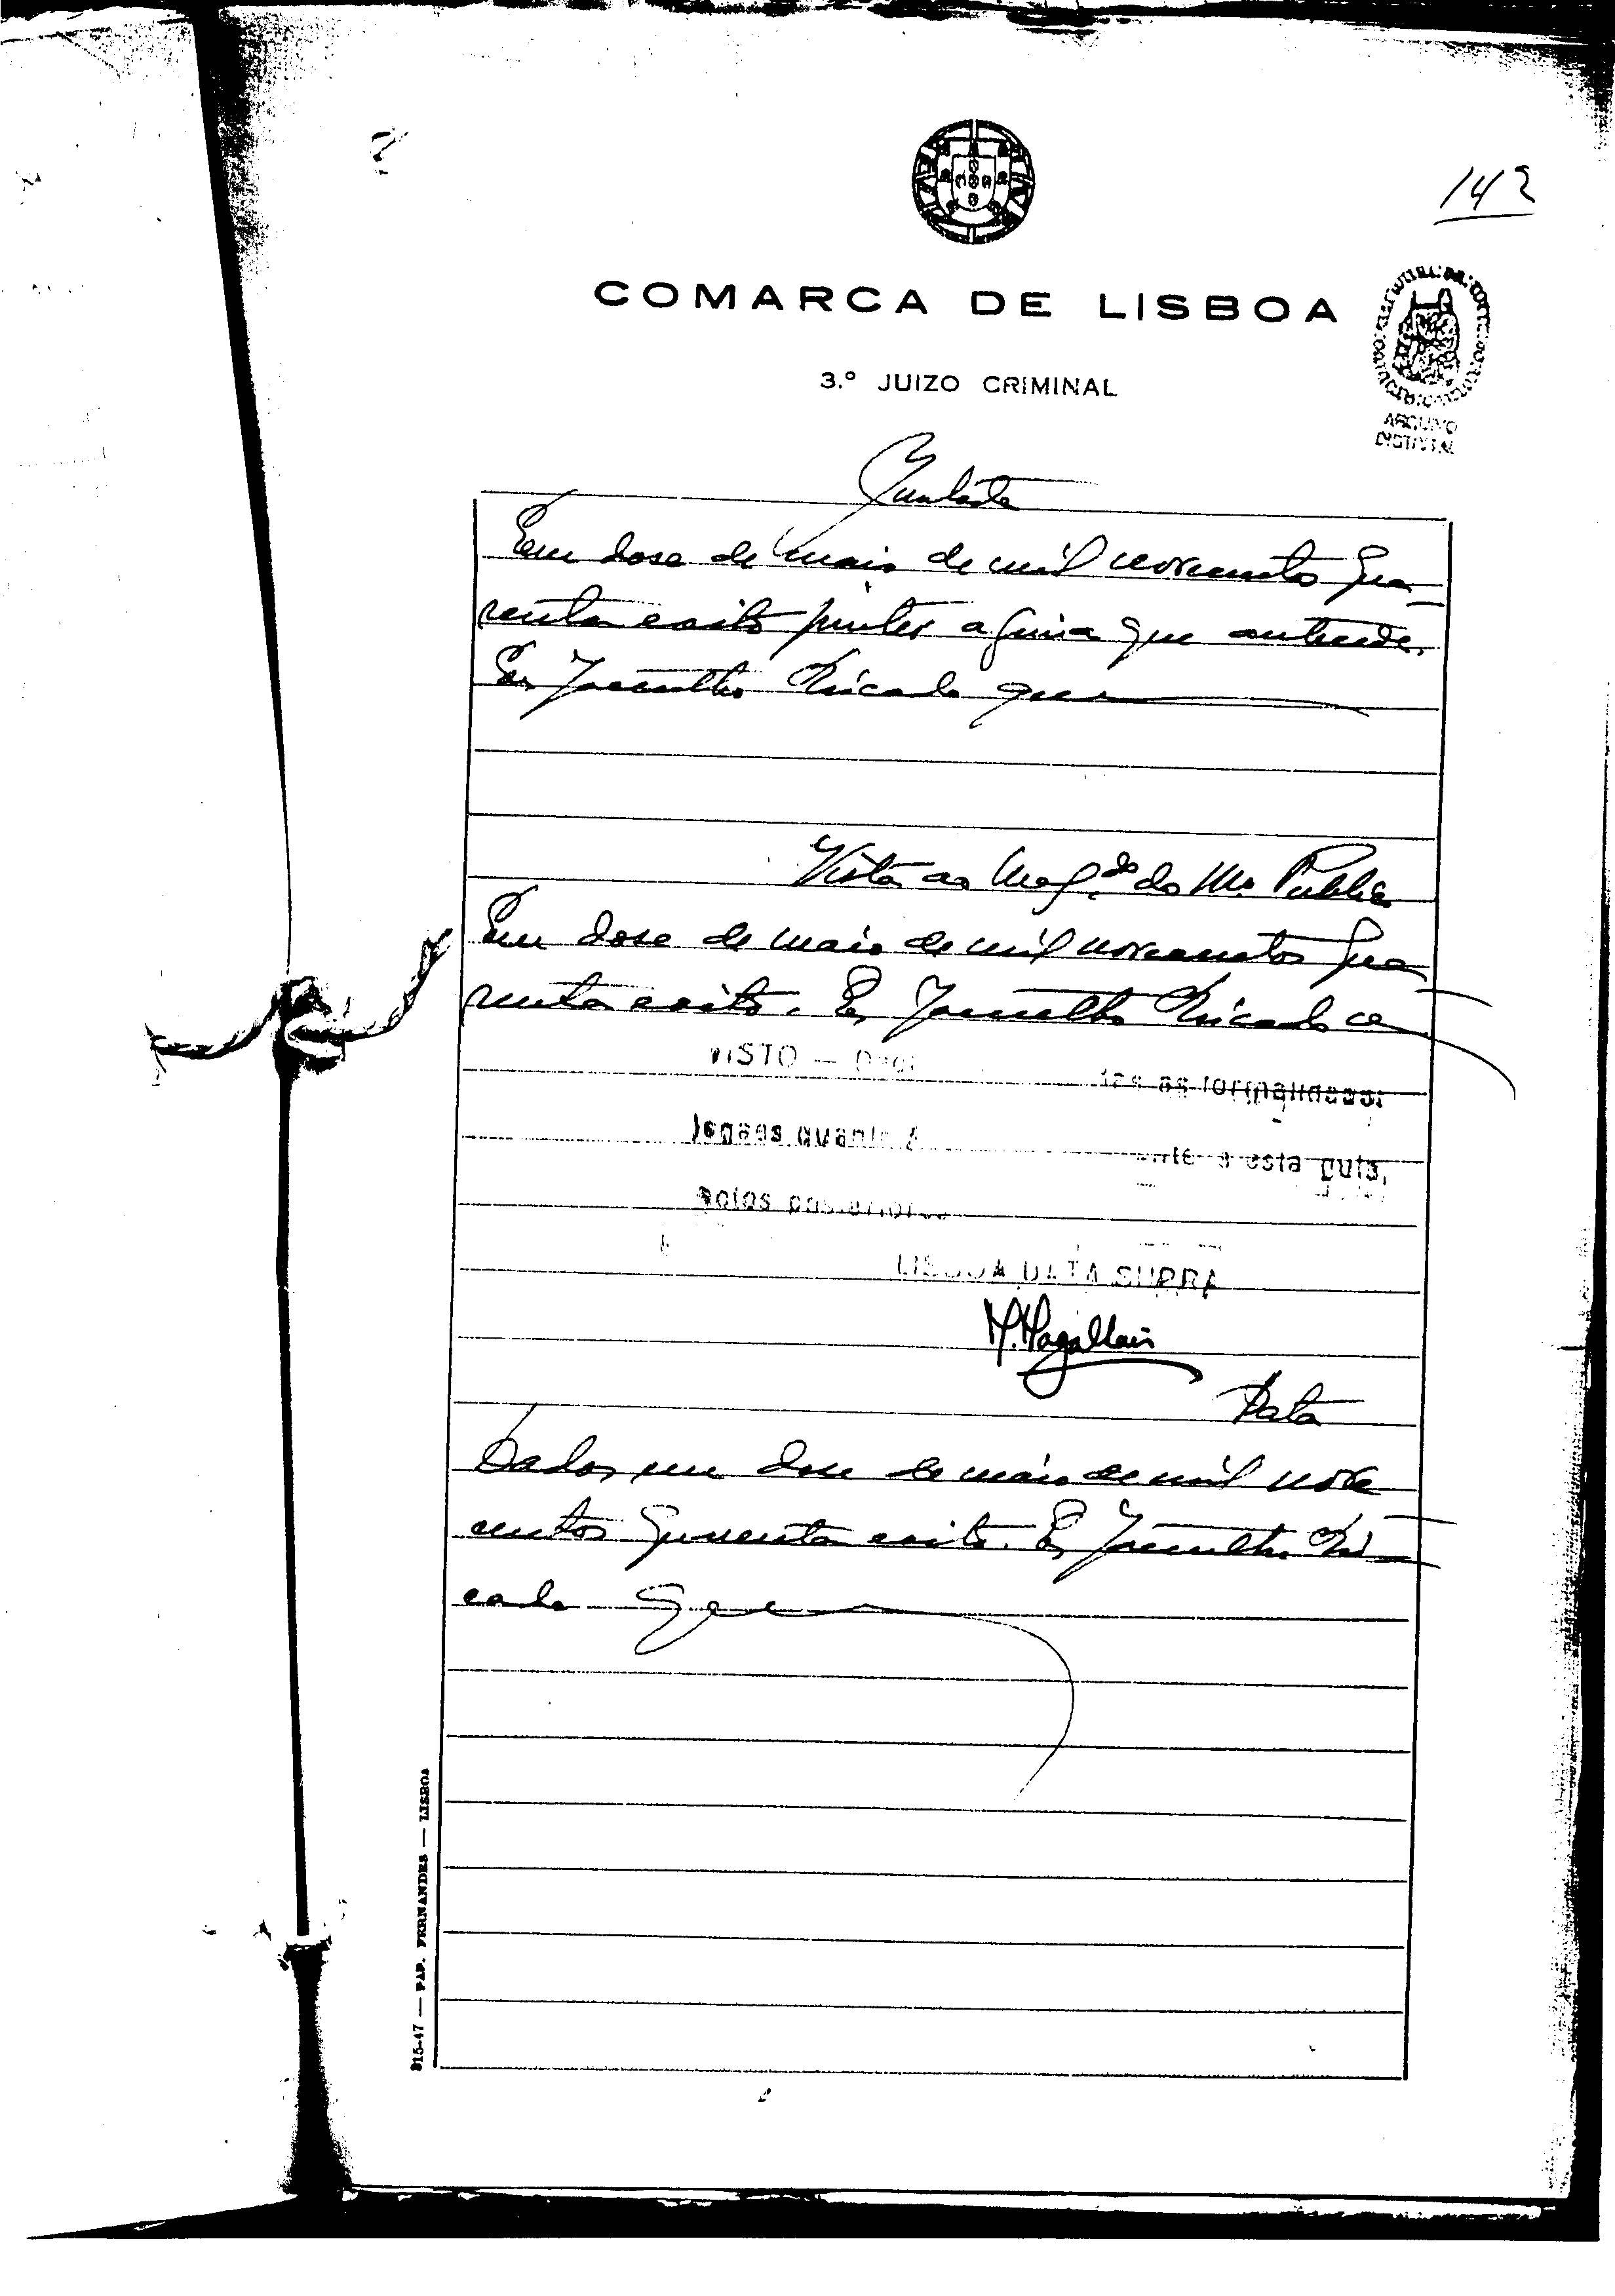 142
COMARCA DE LISBOA
3.º JUIZO CRIMINAL
ARQUIVO
DISTRITAL
Juntada
Em dose de maio de mil novecentos qua
renta e oito juntei a guia que antecede.
Eu, Ricardo que
Vista ao Mag.do do M. Publico
Em dose de maio de mil novecentos qua
renta e oito. Eu, Ricardo
VISTO — as formalidades
legaes quanto a esta guia,
autos posteriores
LISBOA DATA SUPRA
M. Magalhães
Data
Dados em dose de maio de mil nove
centos quarenta e oito. Eu, Ri
cardo que
815-47 — PAP. FERNANDES — LISBOA